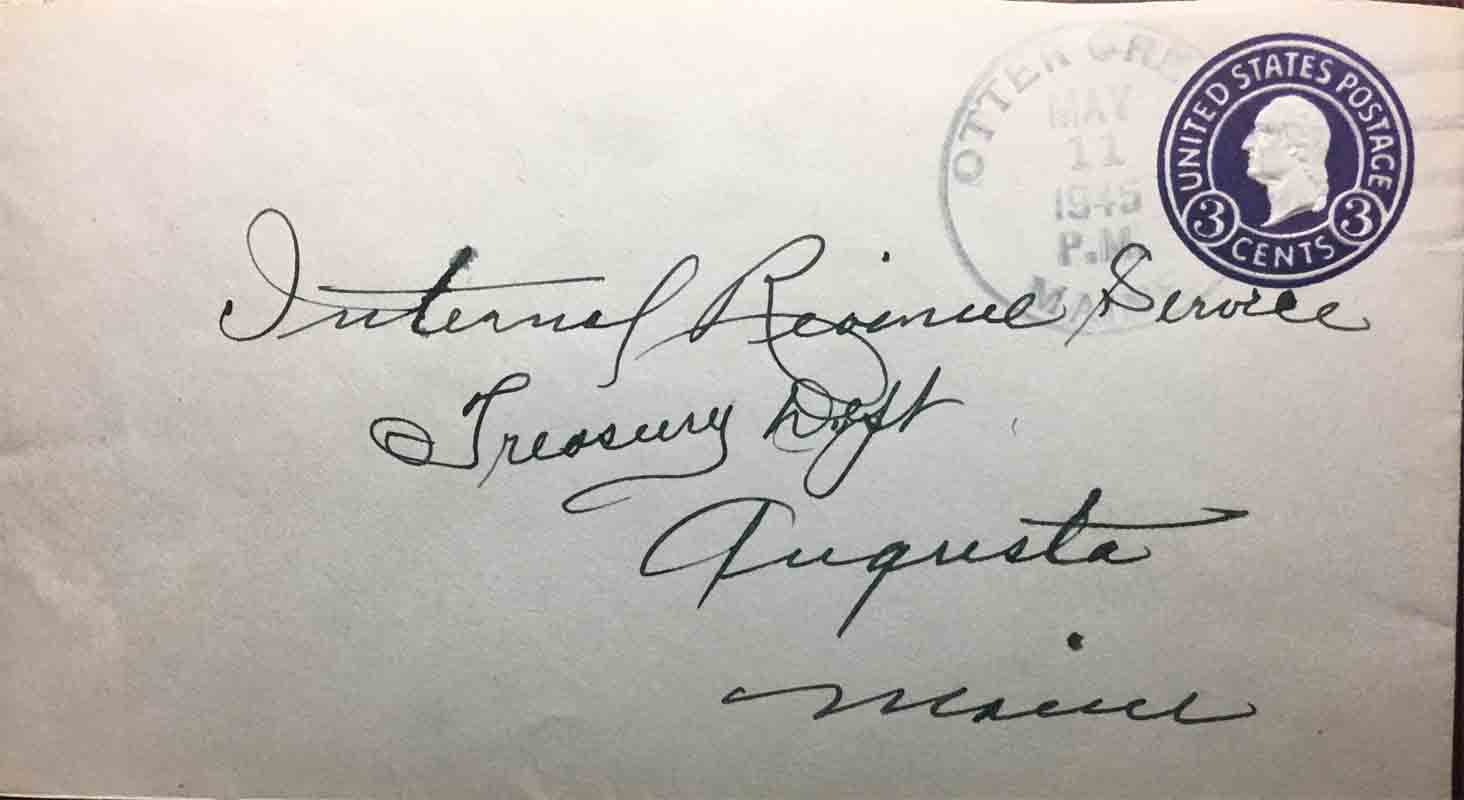 OTTER CRE
MAY
11
1945
P.M.
UNITED STATES POSTAGE
3 CENTS 3
Internal Revenue Service
Treasury Dept
Augusta
Maine